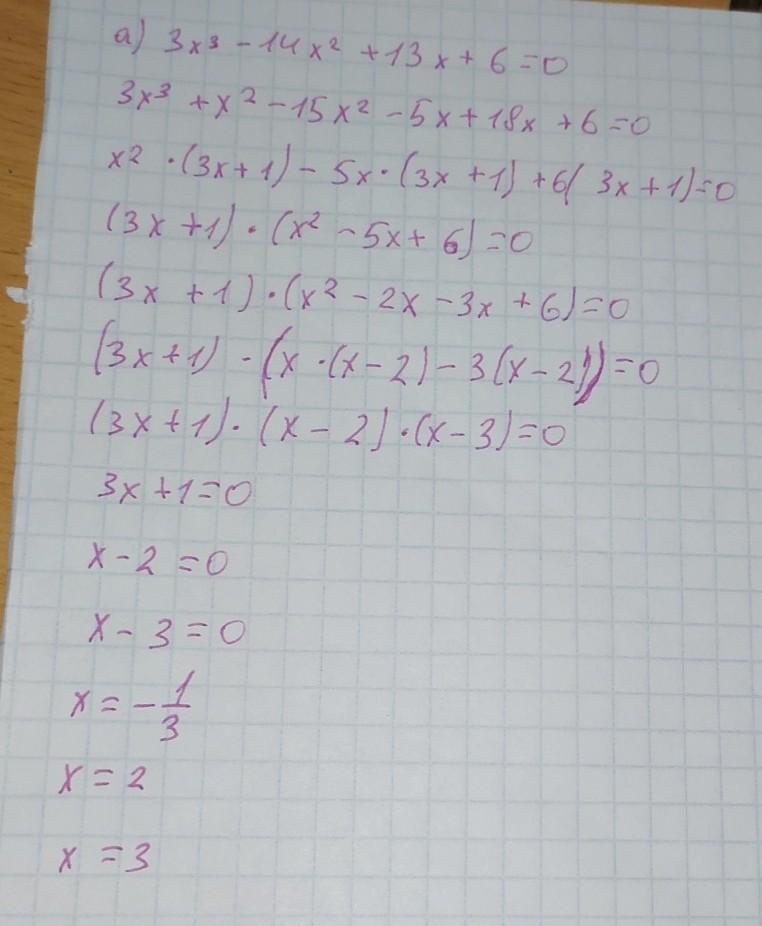 а) 3x³ - 14x² + 13x + 6 = 0
3x³ + x² - 15x² - 5x + 18x + 6 = 0
x² · (3x + 1) - 5x · (3x + 1) + 6( 3x + 1) = 0
(3x + 1) · (x² - 5x + 6) = 0
(3x + 1) · (x² - 2x - 3x + 6) = 0
(3x + 1) · (x · (x - 2) - 3(x - 2)) = 0
(3x + 1) · (x - 2) · (x - 3) = 0
3x + 1 = 0
x - 2 = 0
x - 3 = 0
x = - 1/3
x = 2
x = 3